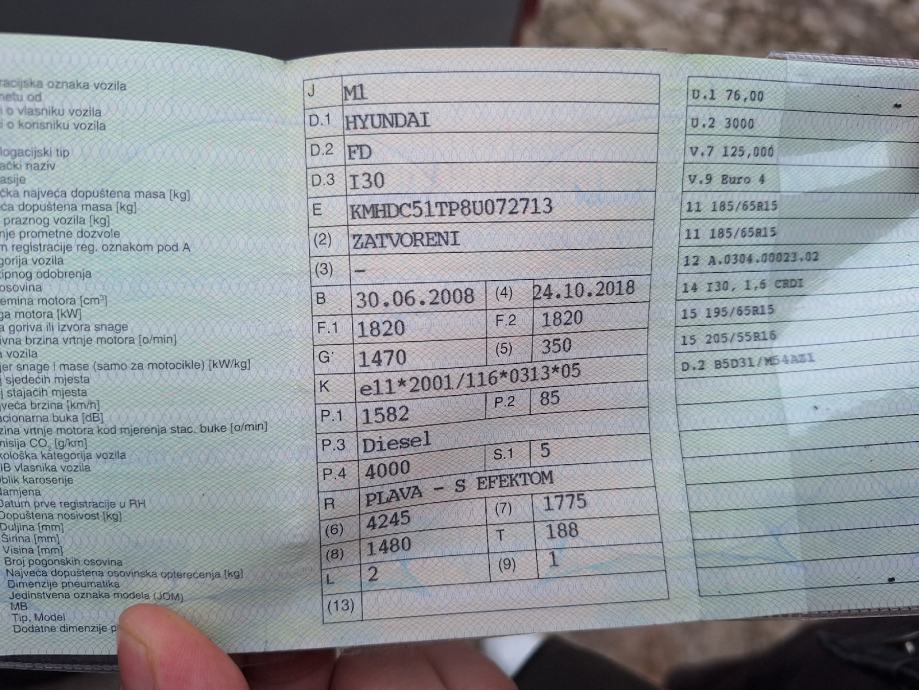 racijska oznaka vozila
metu od
i o vlasniku vozila
i o korisniku vozila
logacijski tip
ački naziv
asije
čka najveća dopuštena masa [kg]
ća dopuštena masa [kg]
praznog vozila [kg]
nje prometne dozvole
m registracije reg. oznakom pod A
gorija vozila
tipnog odobrenja
osovina
emina motora [cm³]
ga motora [kW]
a goriva ili izvora snage
ivna brzina vrtnje motora [o/min]
a vozila
jer snage i mase (samo za motocikle) [kW/kg]
j sjedećih mjesta
j stajaćih mjesta
jveća brzina [km/h]
acionarna buka [dB]
zina vrtnje motora kod mjerenja stac. buke [o/min]
misija CO₂ [g/km]
kološka kategorija vozila
IB vlasnika vozila
blik karoserije
Namjena
Datum prve registracije u RH
Dopuštena nosivost [kg]
Duljina [mm]
Širina [mm]
Visina [mm]
Broj pogonskih osovina
Najveća dopuštena osovinska opterećenja [kg]
Dimenzije pneumatika
Jedinstvena oznaka modela (JOM)
MB
Tip, Model
Dodatne dimenzije p
J M1
D.1 HYUNDAI
D.2 FD
D.3 I30
E KMHDC51TP8U072713
(2) ZATVORENI
(3) –
B 30.06.2008 (4) 24.10.2018
F.1 1820 F.2 1820
G 1470 (5) 350
K e11*2001/116*0313*05
P.1 1582 P.2 85
P.3 Diesel
P.4 4000 S.1 5
R PLAVA - S EFEKTOM
(6) 4245 (7) 1775
(8) 1480 T 188
L 2 (9) 1
(13)
U.1 76,00
U.2 3000
V.7 125,000
V.9 Euro 4
11 185/65R15
11 185/65R15
12 A.0304.00023.02
14 I30, 1,6 CRDI
15 195/65R15
15 205/55R16
D.2 B5D31/M54AZ1